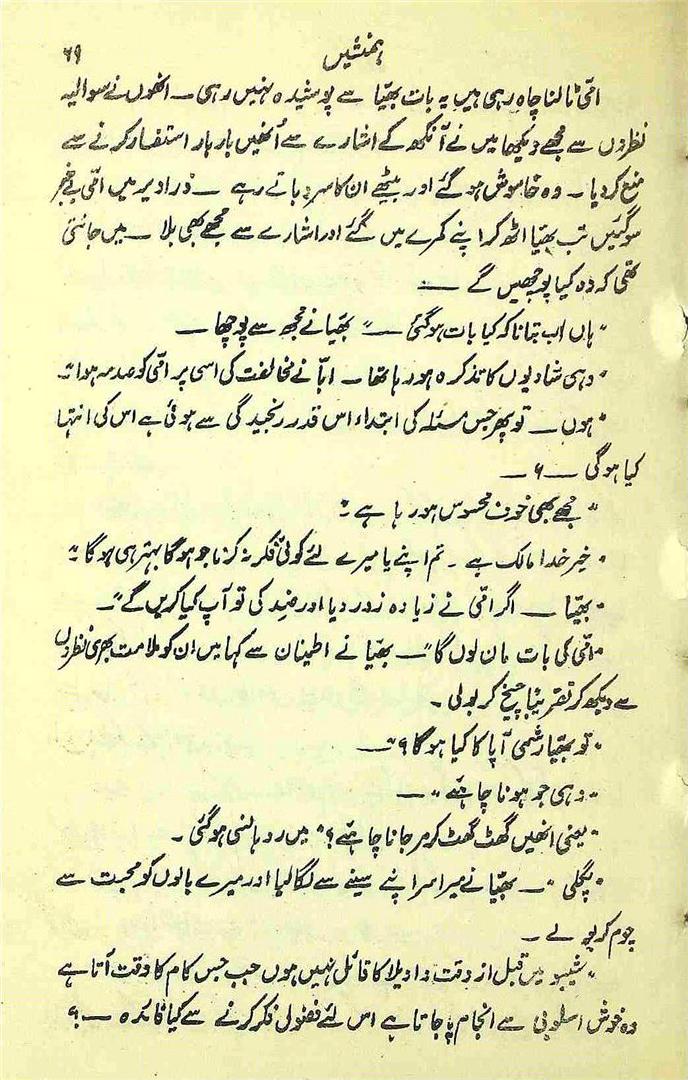 ہمنشیں ۶۹
امّی ٹالنا چاہ رہی ہیں یہ بات بھیّا سے پوشیدہ نہیں رہی — انھوں نے سوالیہ
نظروں سے مجھے دیکھا میں نے آنکھ کے اشارے سے اُنھیں بار بار استفسار کرنے سے
منع کر دیا۔ وہ خاموش ہو گئے اور بیٹھے ان کا سر دباتے رہے — ذرا دیر میں امّی بے خبر
سو گئیں تب بھیّا اٹھ کر اپنے کمرے میں گئے اور اشارے سے مجھے بھی بلا — میں جانتی
تھی کہ وہ کیا پوچھیں گے —
"ہاں اب بتانا کہ کیا بات ہو گئی —" بھیّا نے مجھ سے پوچھا —
"وہی شادیوں کا تذکرہ ہو رہا تھا۔ ابّا نے مخالفت کی اسی پر امّی کو صدمہ ہوا"۔
"ہوں — تو پھر جس مسئلہ کی ابتداء اس قدر رنجیدگی سے ہوئی ہے اس کی انتہا
کیا ہوگی — ؟ —
"مجھے بھی خوف محسوس ہو رہا ہے"
"خیر خدا مالک ہے۔ تم اپنے یا میرے لئے کوئی فکر نہ کرنا جو ہوگا بہتر ہی ہوگا"
"بھیّا — اگر امّی نے زیادہ زور دیا اور ضد کی تو آپ کیا کریں گے"۔
"امّی کی بات مان لوں گا" — بھیّا نے اطینان سے کہا میں ان کو ملامت بھری نظروں
سے دیکھ کر تقریباً چیخ کر بولی۔
"تو بھیّا رشمی آپا کا کیا ہوگا؟" —
"وہی جو ہونا چاہئے" —
"یعنی انھیں گھٹ گھٹ کر مر جانا چاہئے؟" میں روہانسی ہو گئی۔
"پگلی" — بھیّا نے میرا سر اپنے سینے سے لگا لیا اور میرے بالوں کو محبت سے
چوم کر بولے —
"شیبو میں قبل از وقت واویلا کا قائل نہیں ہوں جب جس کام کا وقت آتا ہے
وہ خوش اسلوبی سے انجام پا جاتا ہے اس لئے فضول فکر کرنے سے کیا فائدہ — ؟